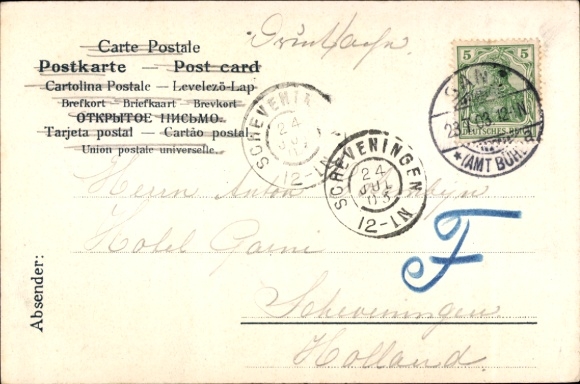 Carte Postale
Postkarte — Post card
Cartolina Postale — Levelező-Lap
Brefkort Briefkaart Brevkort
ОТКРЫТОЕ ПИСЬМО.
Tarjeta postal — Cartão postal
Union postale universelle.
Drucksache.
5 5
DEUTSCHES REICH
23.7.03. 12-1N
*(AMT
SCHEVENIN
24
JUL
12-1N
SCHEVENINGEN
24
JUL
03
12-1N
Herrn Anton
Hotel Garni
F
Scheveningen
Holland.
Absender: